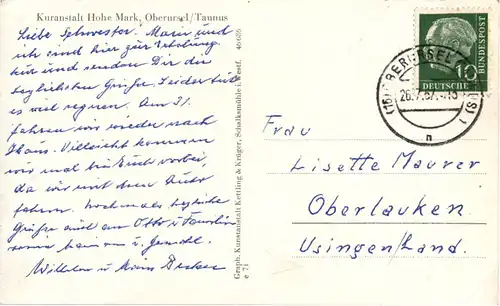 Kuranstalt Hohe Mark, Oberursel/Taunus
Liebe Schwester. Maria und
ich sind hier zur Erholung
hier und senden Dir die
herzlichsten Grüße. Leider tut
es viel regnen. Am 31.
fahren wir wieder nach
Haus. Vielleicht kommen
wir mal bei Euch vorbei,
da wir mit dem Auto
fahren. Nochmals herzliche
Grüße auch an Otto u. Familie
u.
Wilhelm u.
46 686
Graph. Kunstanstalt Kettling & Krüger, Schalksmühle i. Westf.
e 71
DEUTSCHE
BUNDESPOST
10
OBERURSEL
(16)
26.7.57
n
Frau
Lisette Maurer
Oberlauken
Usingen/Land.